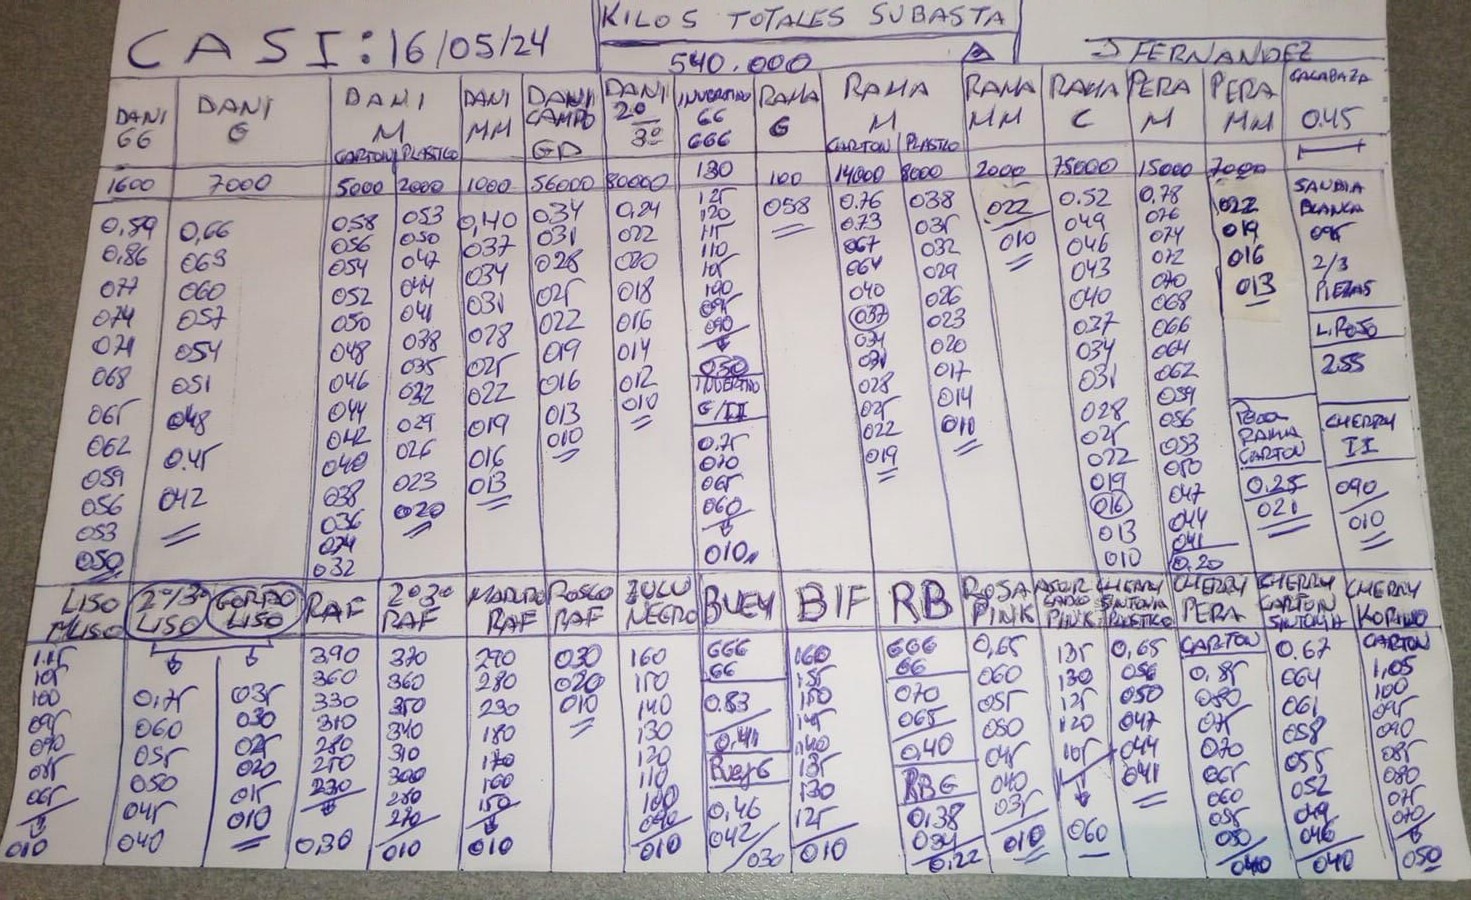 KILOS TOTALES SUBASTA
CASI: 16/05/24
540.000
J FERNANDEZ
DANI 66 1600 0,89 0,86 077 074 071 068 065 062 059 056 053 050
DANI G 7000 0,66 063 060 057 054 051 048 0.45 042
DANI M
CARTON 5000 058 056 054 052 050 048 046 044 042 040 038 036 034 032
PLASTICO 2000 053 050 047 044 041 038 035 032 029 026 023 020
DANI MM 1000 0,40 037 034 031 028 025 022 019 016 013
DANI CAMPO GD 56000 034 031 028 025 022 019 016 013 010
DANI 2º 3º 80000 0,24 022 020 018 016 014 012 010
INVERTIDO 66 666 130 125 120 115 110 105 100 095 090 050
INVERTIDO G/II 0.75 070 065 060 010
RAMA G 100 058
RAMA M
CARTON 14000 0.76 0.73 067 064 040 037 034 031 028 025 022 019
PLASTICO 8000 038 035 032 029 026 023 020 017 014 010
RAMA MM 2000 022 010
RAMA C 75000 0.52 049 046 043 040 037 034 031 028 025 022 019 016 013 010
PERA M 15000 0.78 076 074 072 070 068 066 064 062 059 056 053 050 047 044 041 0.20
PERA MM 7000 022 019 016 013
CALABAZA 0.45
SANDIA BLANCA 095
2/3 PIEZAS
L.ROJO 2.55
PERA RAMA CARTON 0.25 021
CHERRY II 090 010
LISO MLISO 1.15 105 100 095 090 085 065 010
2º/3º LISO 0,75 060 055 050 045 040
GORDO LISO 035 030 025 020 015 010
RAF 390 360 330 310 280 250 230 0,30
2º3º RAF 370 360 350 340 310 300 280 270 010
MADURO RAF 290 280 230 180 170 160 150 010
ROSCO RAF 030 020 010
ZULU NEGRO 160 150 140 130 120 110 100 090 010
BUEY 666 66 0.83 0.41
BUEY G 0,46 042 030
BIF 160 155 150 145 140 135 130 125 010
RB 666 66 070 065 0,40
RB G 0,38 034 0,22
ROSA PINK 0,65 060 055 050 045 040 035 010
PINK 135 130 125 120 105 060
CHERRY SINTONIA PLASTICO 0,65 056 050 047 044 041
CHERRY PERA CARTON 0,85 080 075 070 065 060 055 050 040
CHERRY CARTON SINTONIA 0.67 064 061 058 055 052 049 046 040
CHERRY KORINO CARTON 1,05 100 095 090 085 080 075 070 050